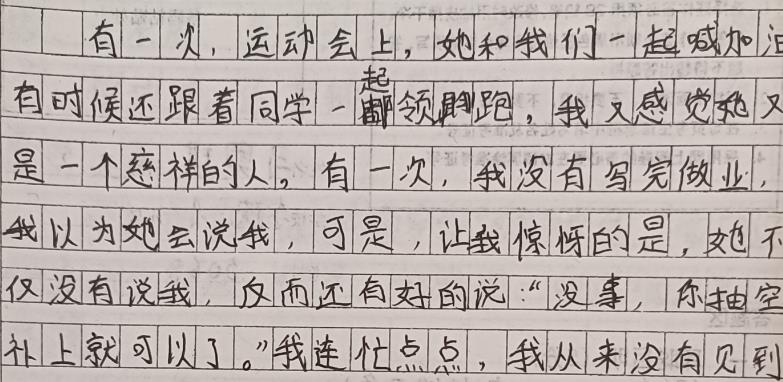 有一次，运动会上，她和我们一起喊加油
有时候还跟着同学一起领跑，我又感觉她又
是一个慈祥的人。有一次，我没有写完做业，
我以为她会说我，可是，让我惊怀的是，她不
仅没有说我，反而还有好的说：“没事，你抽空
补上就可以了。”我连忙点点，我从来没有见到